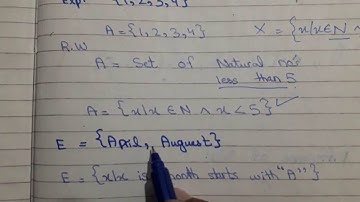 Exp: {1,2,3,4}
A={1,2,3,4} X = {x/x∈N ∧
R.W
A= Set of Natural no's
less than 5
A={x|x∈N ∧ x<5}✓
E = {April, Auguest}
E = {x/x is month starts with "A"}